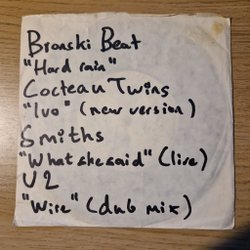 Bronski Beat
"Hard rain"
Cocteau Twins
"Ivo" (new version)
Smiths
"What she said" (live)
U2
"Wire" (dub mix)